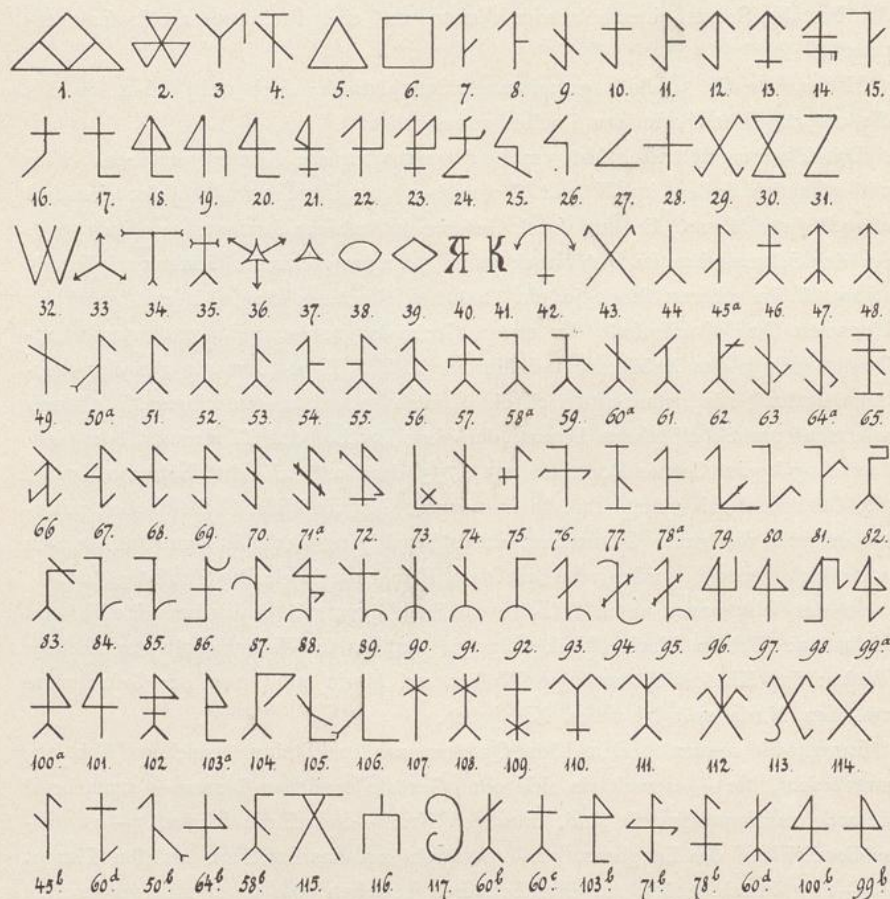 1. 2. 3 4. 5. 6. 7. 8. 9. 10. 11. 12. 13. 14. 15.
16. 17. 18. 19. 20. 21. 22. 23. 24. 25. 26. 27. 28. 29. 30. 31.
Я К
32. 33 34. 35. 36. 37. 38. 39. 40. 41. 42. 43. 44 45a 46. 47. 48.
49. 50a 51. 52. 53. 54. 55. 56. 57. 58a 59. 60a 61. 62. 63. 64a 65.
66 67. 68. 69. 70. 71a 72. 73. 74. 75. 76. 77. 78a 79. 80. 81. 82.
83. 84. 85. 86. 87. 88. 89. 90. 91. 92. 93. 94. 95. 96. 97. 98. 99a
100a 101. 102 103a 104. 105. 106. 107. 108. 109. 110. 111. 112. 113. 114.
45b 60d 50b 64b 58b 115. 116. 117. 60b 60c 103b 71b 78b 60d 100b 99b